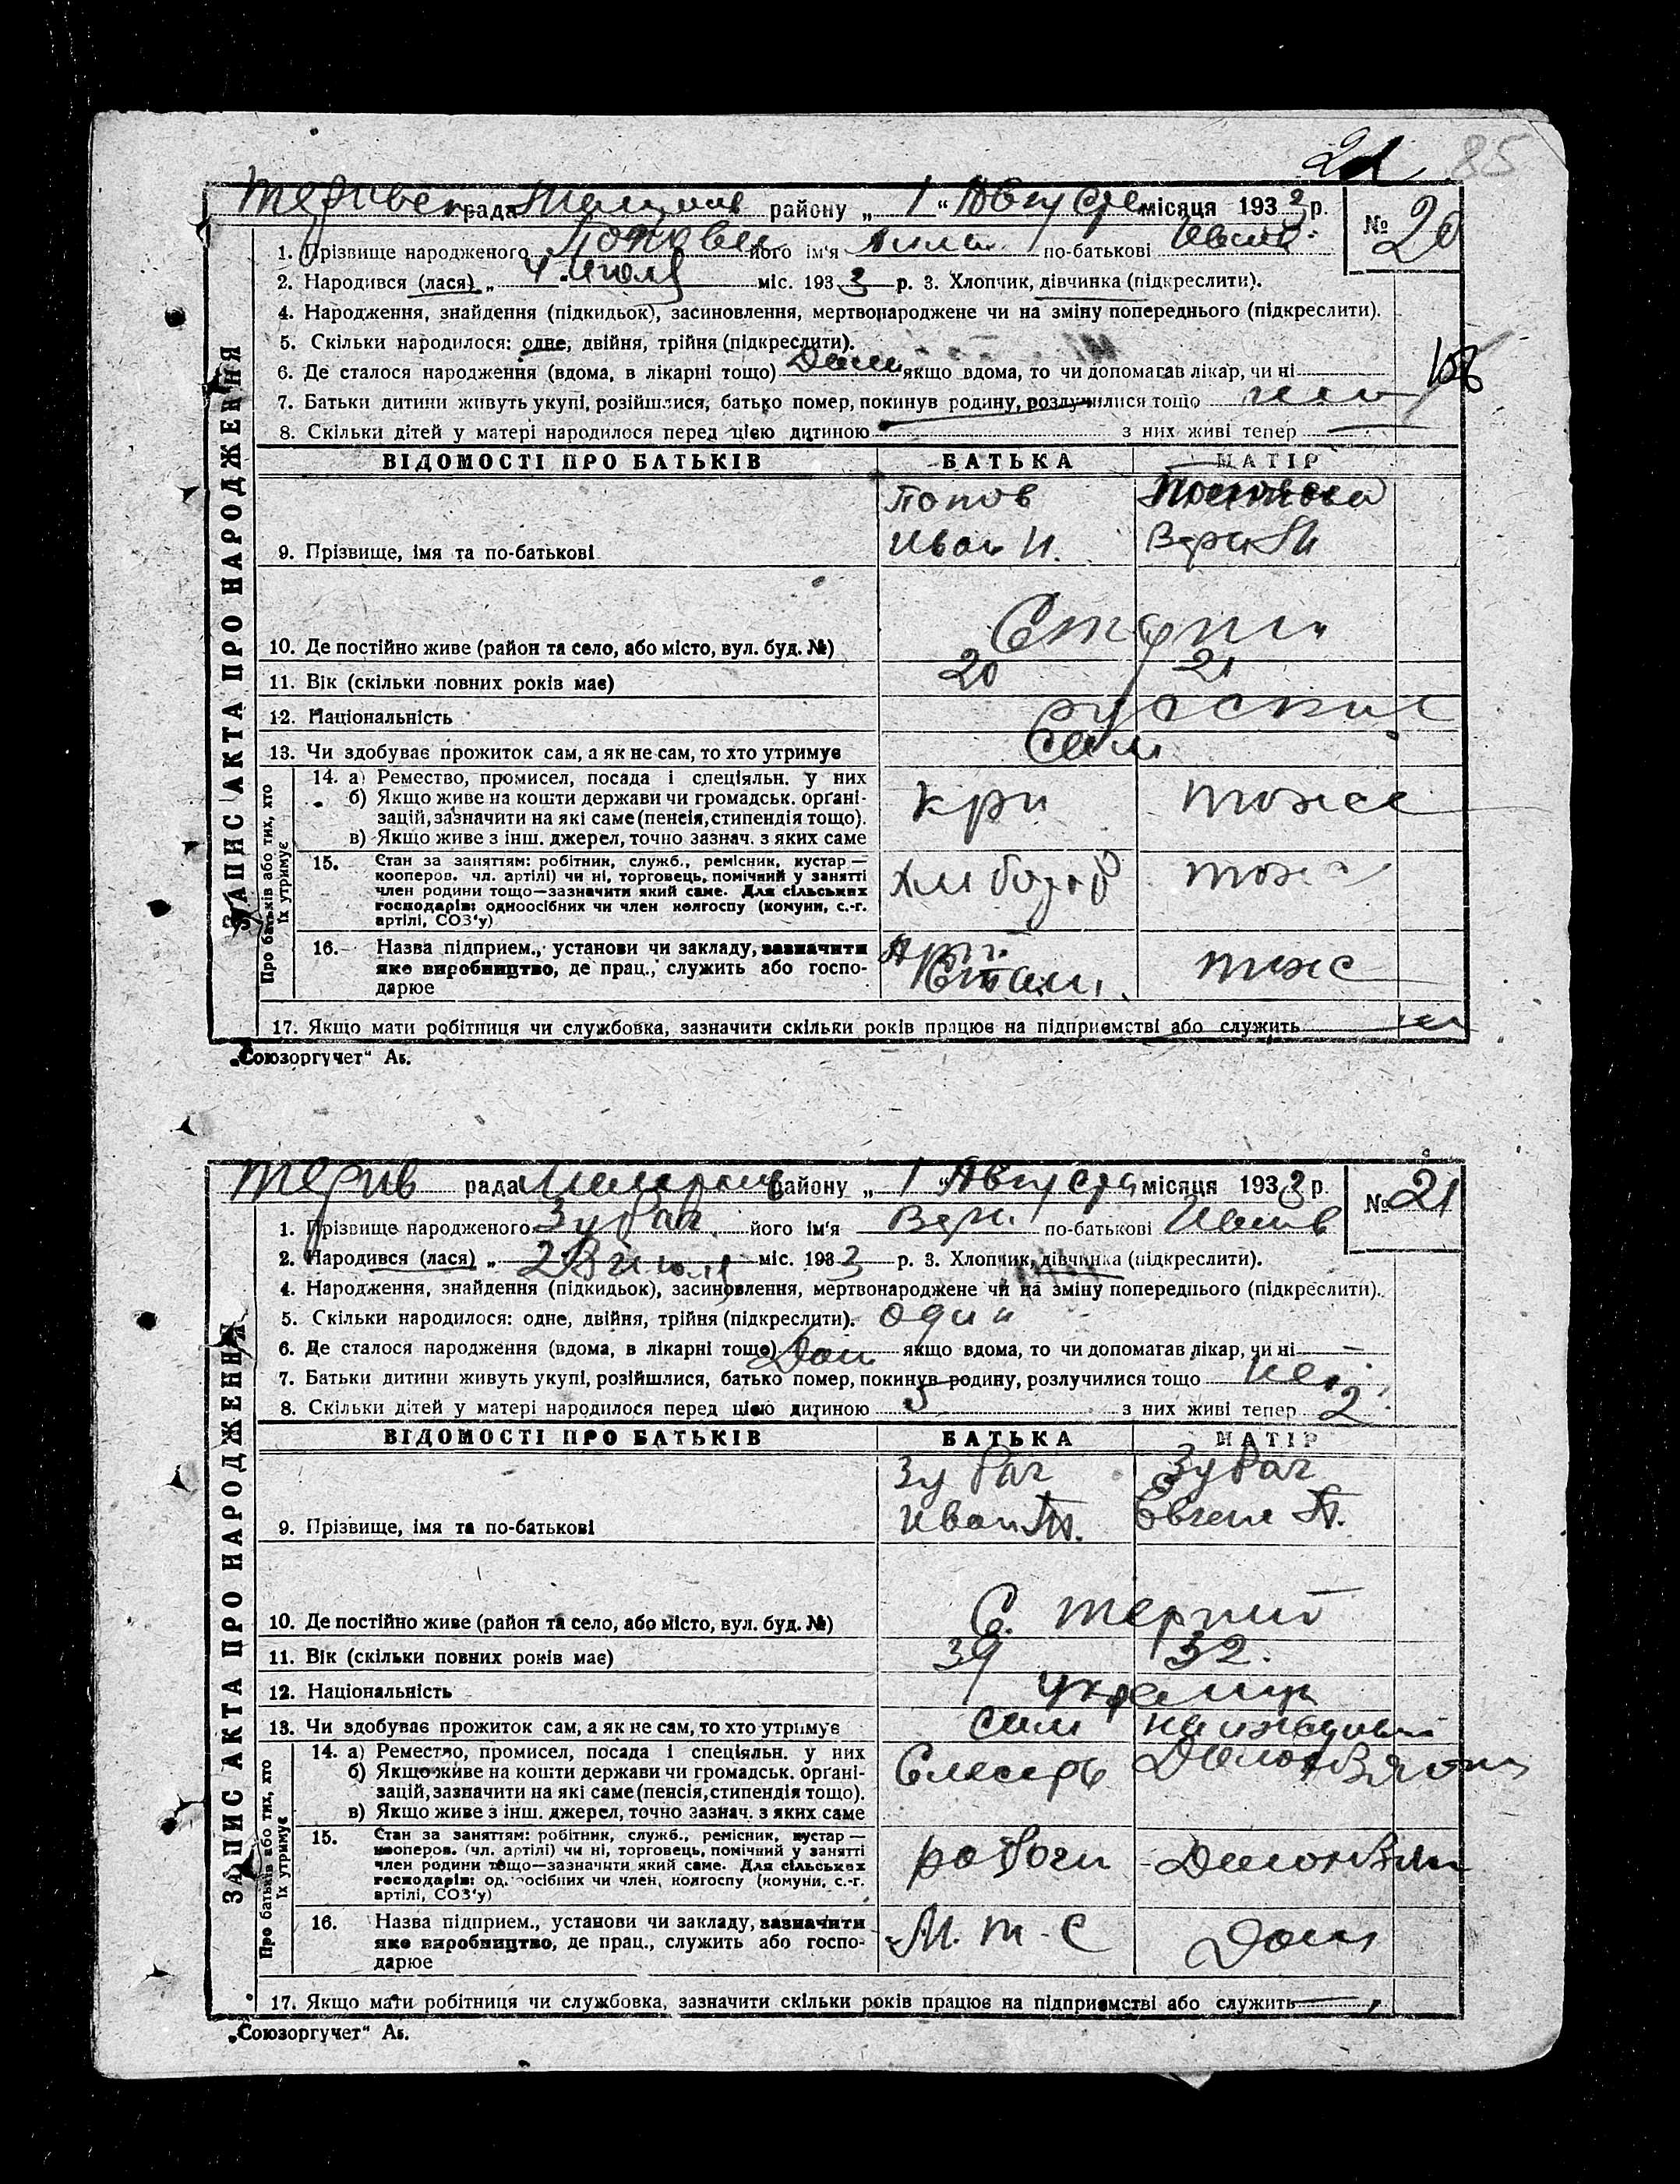 21 85
рада району „ 1 “ Августа місяця 1933 р. № 20
1. Прізвище народженого його ім'я по-батькові Иван.
2. Народився (лася) „ 4 Июля міс. 1933 р. 3. Хлопчик, дівчинка (підкреслити).
4. Народження, знайдення (підкидьок), засиновлення, мертвонароджене чи на зміну попереднього (підкреслити).
5. Скільки народилося: одне, двійня, трійня (підкреслити).
6. Де сталося народження (вдома, в лікарні тощо) Дом якщо вдома, то чи допомагав лікар, чи ні
7. Батьки дитини живуть укупі, розійшлися, батько помер, покинув родину, розлучилися тощо
8. Скільки дітей у матері народилося перед цією дитиною з них живі тепер
ВІДОМОСТІ ПРО БАТЬКІВ БАТЬКА МАТІР
Попов
9. Прізвище, імя та по-батькові Иван И. Вера
10. Де постійно живе (район та село, або місто, вул. буд. №)
11. Вік (скільки повних років має) 20 21
12. Національність русские
13. Чи здобуває прожиток сам, а як не сам, то хто утримує Сам
14. а) Ремество, промисел, посада і спеціяльн. у них
б) Якщо живе на кошти держави чи громадськ. органі-
зацій, зазначити на які саме (пенсія, стипендія тощо).
в) Якщо живе з інш. джерел, точно зазнач. з яких саме
тоже
15. Стан за заняттям: робітник, служб., ремісник, кустар—
кооперов. чл. артілі) чи ні, торговець, помічний у занятті
член родини тощо—зазначити який саме. Для сільських
господарів: одноосібних чи член колгоспу (комуни, с.-г.
артілі, СОЗ'у)
тоже
16. Назва підприєм., установи чи закладу, зазначити
яке виробництво, де прац., служить або госпо-
дарює
тоже
17. Якщо мати робітниця чи службовка, зазначити скільки років працює на підприємстві або служить
ЗАПИС АКТА ПРО НАРОДЖЕННЯ
Про батьків або тих, хто
їх утримує
„Союзоргучет“ Ав.
Терив рада району „ 1 “ Августа місяця 1933 р. № 21
1. Прізвище народженого Зубач його ім'я Вера по-батькові Иванов
2. Народився (лася) „ міс. 1933 р. 3. Хлопчик, дівчинка (підкреслити).
4. Народження, знайдення (підкидьок), засиновлення, мертвонароджене чи на зміну попереднього (підкреслити).
5. Скільки народилося: одне, двійня, трійня (підкреслити). один
6. Де сталося народження (вдома, в лікарні тощо) Дом якщо вдома, то чи допомагав лікар, чи ні
7. Батьки дитини живуть укупі, розійшлися, батько помер, покинув родину, розлучилися тощо
8. Скільки дітей у матері народилося перед цією дитиною 5 з них живі тепер 2
ВІДОМОСТІ ПРО БАТЬКІВ БАТЬКА МАТІР
Зубач Зубач
9. Прізвище, імя та по-батькові Иван Т. Евгени
10. Де постійно живе (район та село, або місто, вул. буд. №) С. Терпий
11. Вік (скільки повних років має) 39 32.
12. Національність украинц
13. Чи здобуває прожиток сам, а як не сам, то хто утримує сам
14. а) Ремество, промисел, посада і спеціяльн. у них
б) Якщо живе на кошти держави чи громадськ. органі-
зацій, зазначити на які саме (пенсія, стипендія тощо).
в) Якщо живе з інш. джерел, точно зазнач. з яких саме
Слесарь
15. Стан за заняттям: робітник, служб., ремісник, кустар—
кооперов. (чл. артілі) чи ні, торговець, помічний у занятті
член родини тощо—зазначити який саме. Для сільських
господарів: одноосібних чи член, колгоспу (комуни, с.-г.
артілі, СОЗ'у)
рабочи
16. Назва підприєм., установи чи закладу, зазначити
яке виробництво, де прац., служить або госпо-
дарює
М. Т. С Дом
17. Якщо мати робітниця чи службовка, зазначити скільки років працює на підприємстві або служить
ЗАПИС АКТА ПРО НАРОДЖЕННЯ
Про батьків або тих, хто
їх утримує
„Союзоргучет“ Ав.